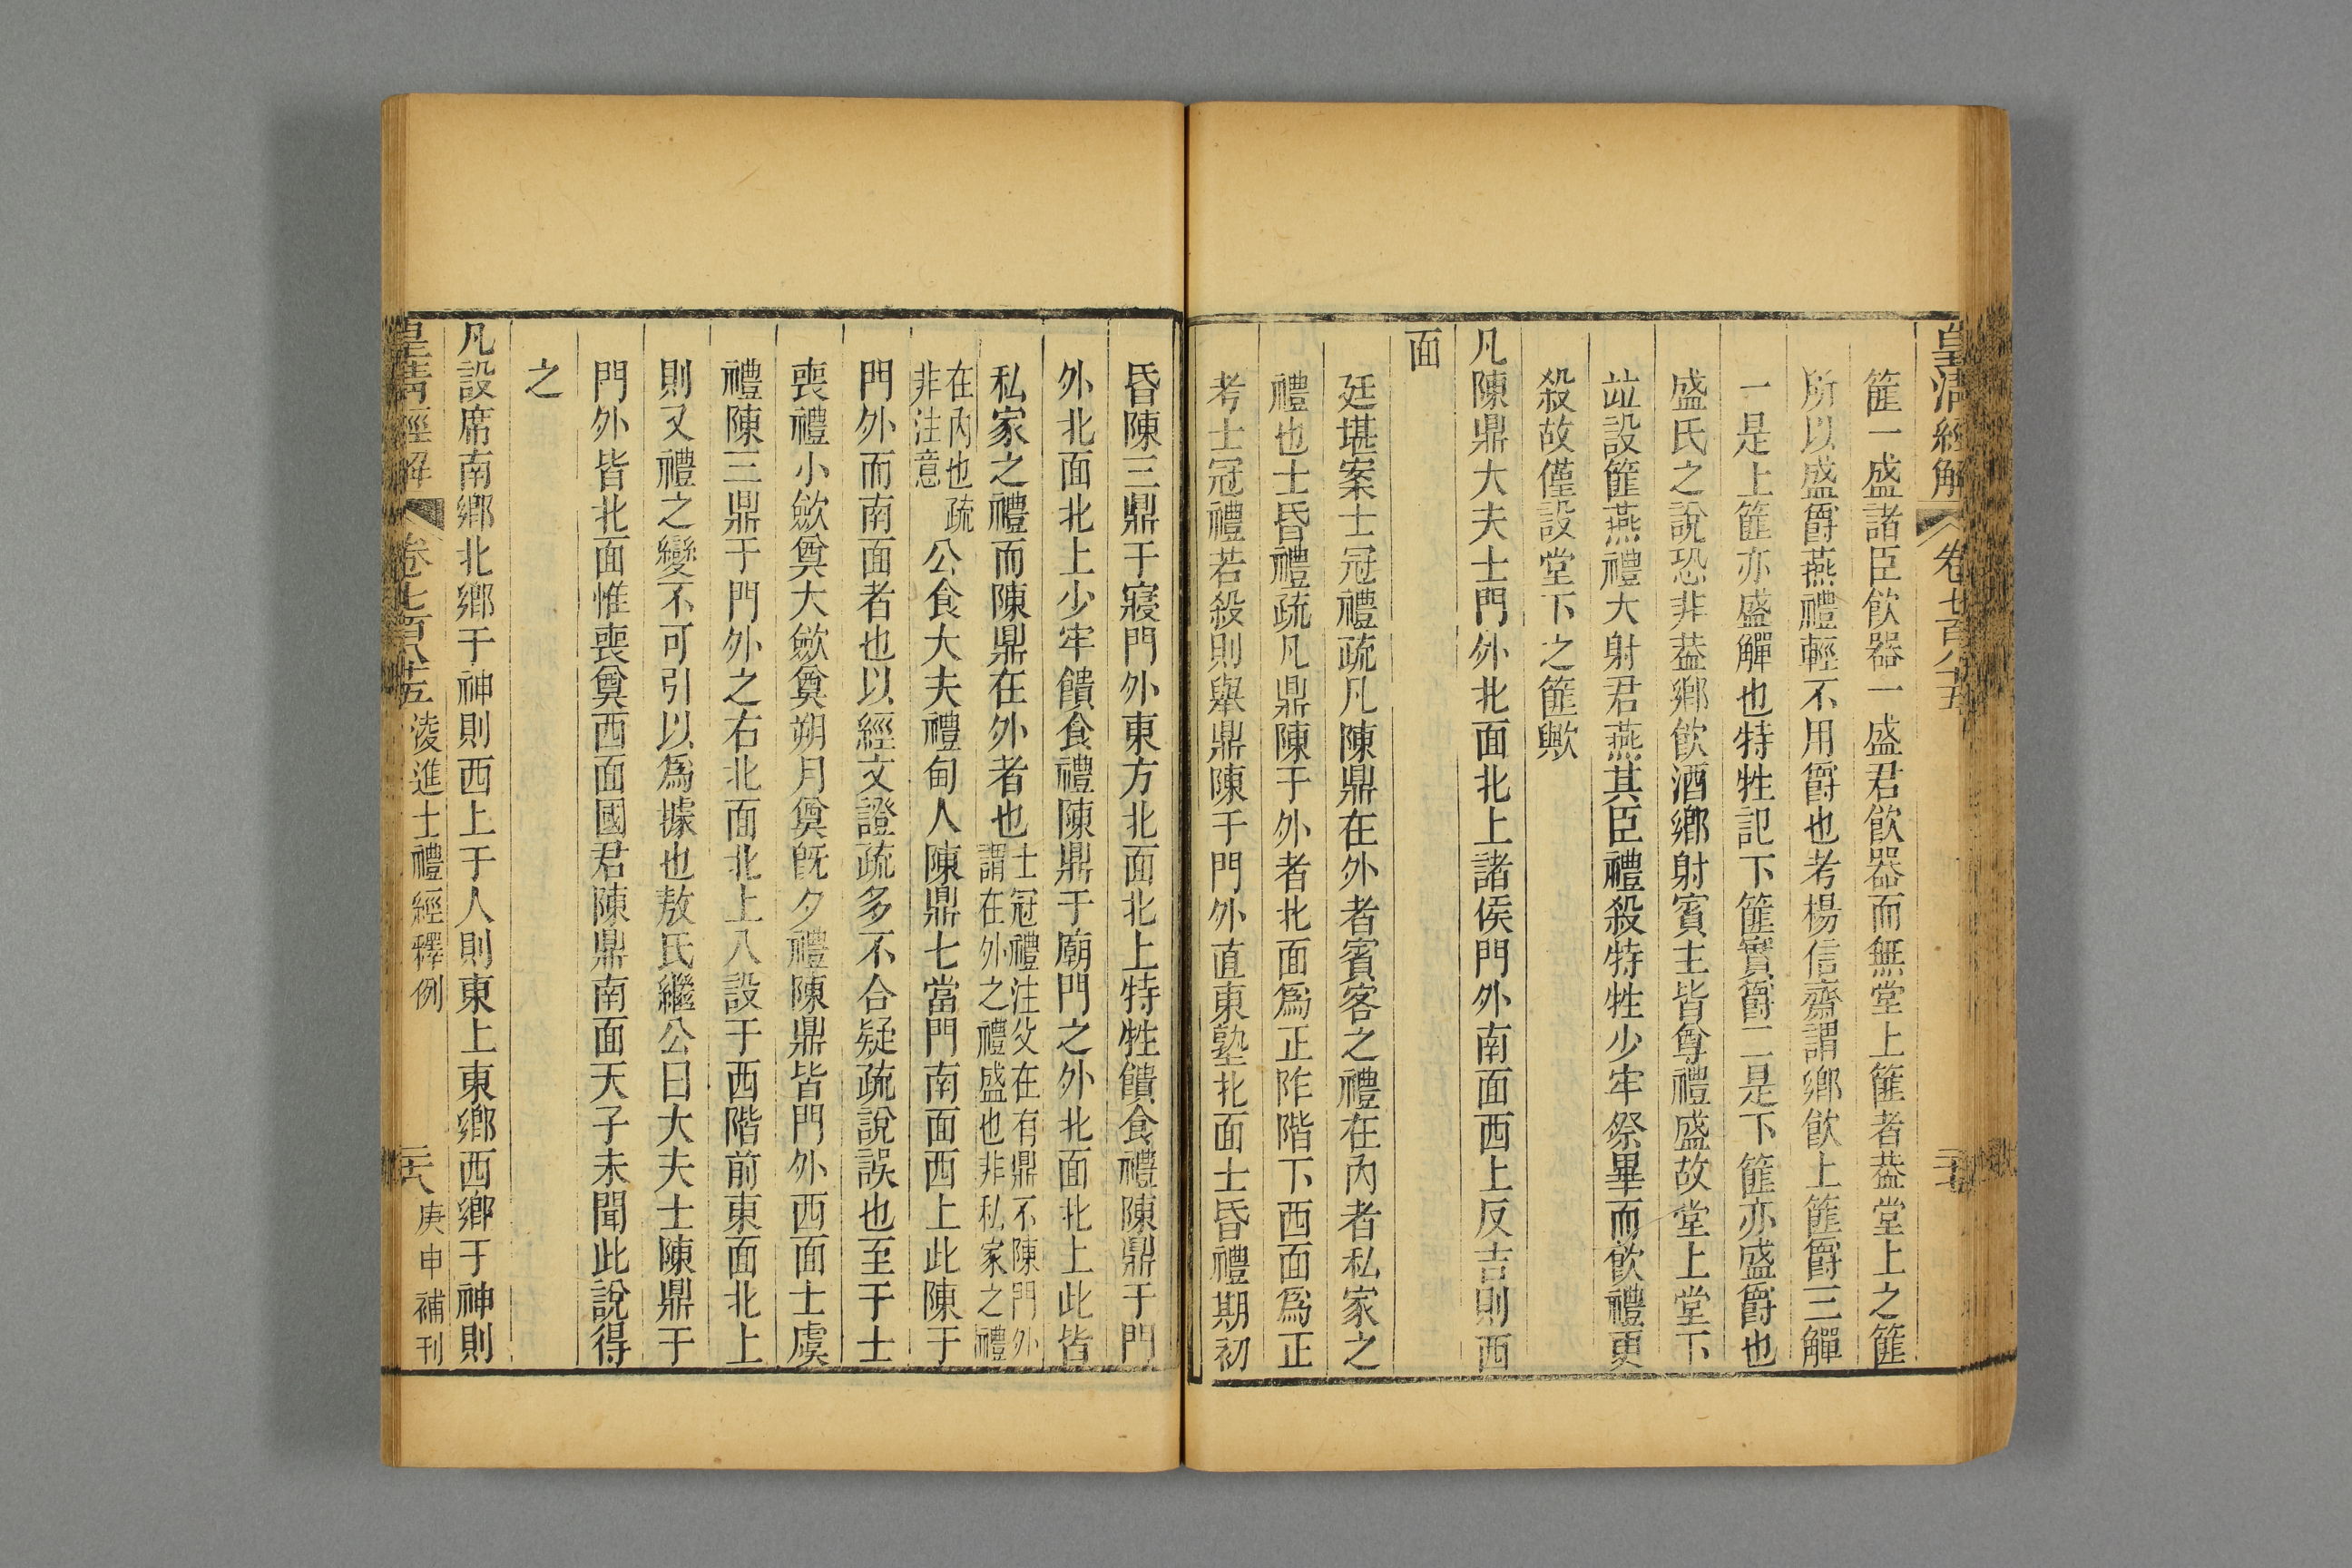 皇清經解
篚一盛諸臣飮器一盛君飮器而無堂上篚者葢堂上之篚
所以盛爵燕禮輕不用爵也考楊信齋謂鄉飮上篚爵三觶
一是上篚亦盛觶也特牲記下篚實爵二是下篚亦盛爵也
盛氏之說恐非葢鄉飮酒鄉射賓主皆尊禮盛故堂上堂下
竝設篚燕禮大射君燕其臣禮殺特牲少牢祭畢而飮禮更
殺故僅設堂下之篚歟
凡陳鼎大夫士門外北面北上諸侯門外南面西上反吉則西
面
廷堪案士冠禮疏凡陳鼎在外者賓客之禮在內者私家之
禮也士昏禮疏凡鼎陳于外者北面爲正阼階下西面爲正
考士冠禮若殺則舉鼎陳于門外直東塾北面士昏禮期初
昏陳三鼎于寢門外東方北面北上特牲饋食禮陳鼎于門
外北面北上少牢饋食禮陳鼎于廟門之外北面北上此皆
私家之禮而陳鼎在外者也士冠禮注父在有鼎不陳門外
謂在外之禮盛也非私家之禮
在內也疏
非注意
公食大夫禮甸人陳鼎七當門南面西上此陳于
門外而南面者也以經文證疏多不合疑疏說誤也至于士
喪禮小斂奠大斂奠朔月奠旣夕禮陳鼎皆門外西面士虞
禮陳三鼎于門外之右北面北上入設于西階前東面北上
則又禮之變不可引以爲據也敖氏繼公曰大夫士陳鼎于
門外皆北面惟喪奠西面國君陳鼎南面天子未聞此說得
之
凡設席南鄉北鄉于神則西上于人則東上東鄉西鄉于神則
皇清經解 卷七百八十五 淩進士禮經釋例 庚申補刊